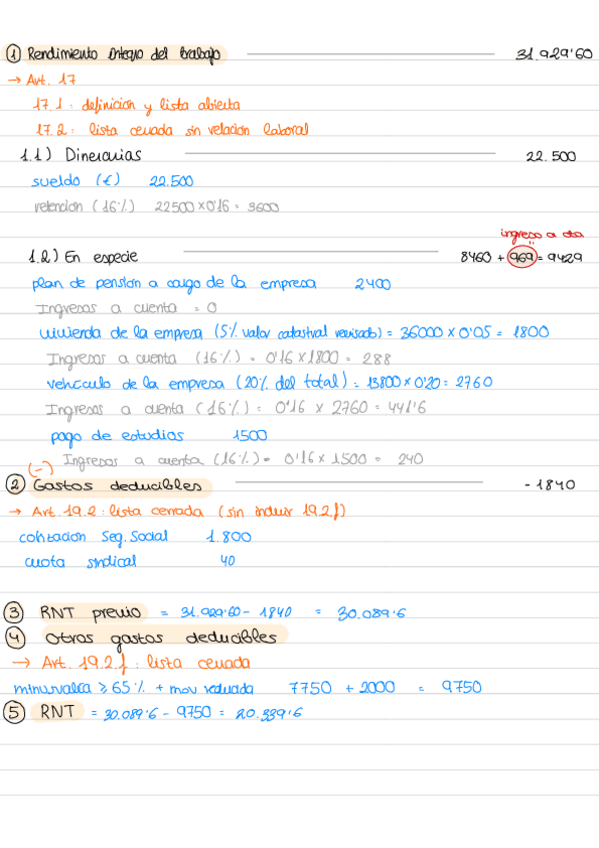 ① Rendimiento íntegro del trabajo 31.929'60
→ Art. 17
17.1: definición y lista abierta
17.2: lista cerrada sin relación laboral
1.1) Dinerarias 22.500
sueldo (€) 22.500
retención (16%) 22500 x 0'16 = 3600
ingreso a cta
1.2) En especie 8460 + 969 = 9429
plan de pensión a cargo de la empresa 2400
Ingresos a cuenta = 0
vivienda de la empresa (5% valor catastral revisado) = 36000 x 0'05 = 1800
Ingresos a cuenta (16%) = 0'16 x 1800 = 288
vehículo de la empresa (20% del total) = 13800 x 0'20 = 2760
Ingresos a cuenta (16%) = 0'16 x 2760 = 441'6
pago de estudios 1500
Ingresos a cuenta (16%) = 0'16 x 1500 = 240
(-)
② Gastos deducibles - 1840
→ Art. 19.2: lista cerrada (sin incluir 19.2.f)
cotización Seg. Social 1.800
cuota sindical 40
③ RNT previo = 31.929'60 - 1840 = 30.089'6
④ Otros gastos deducibles
→ Art. 19.2.f: lista cerrada
minusvalía ≥ 65% + mov reducida 7750 + 2000 = 9750
⑤ RNT = 30.089'6 - 9750 = 20.339'6